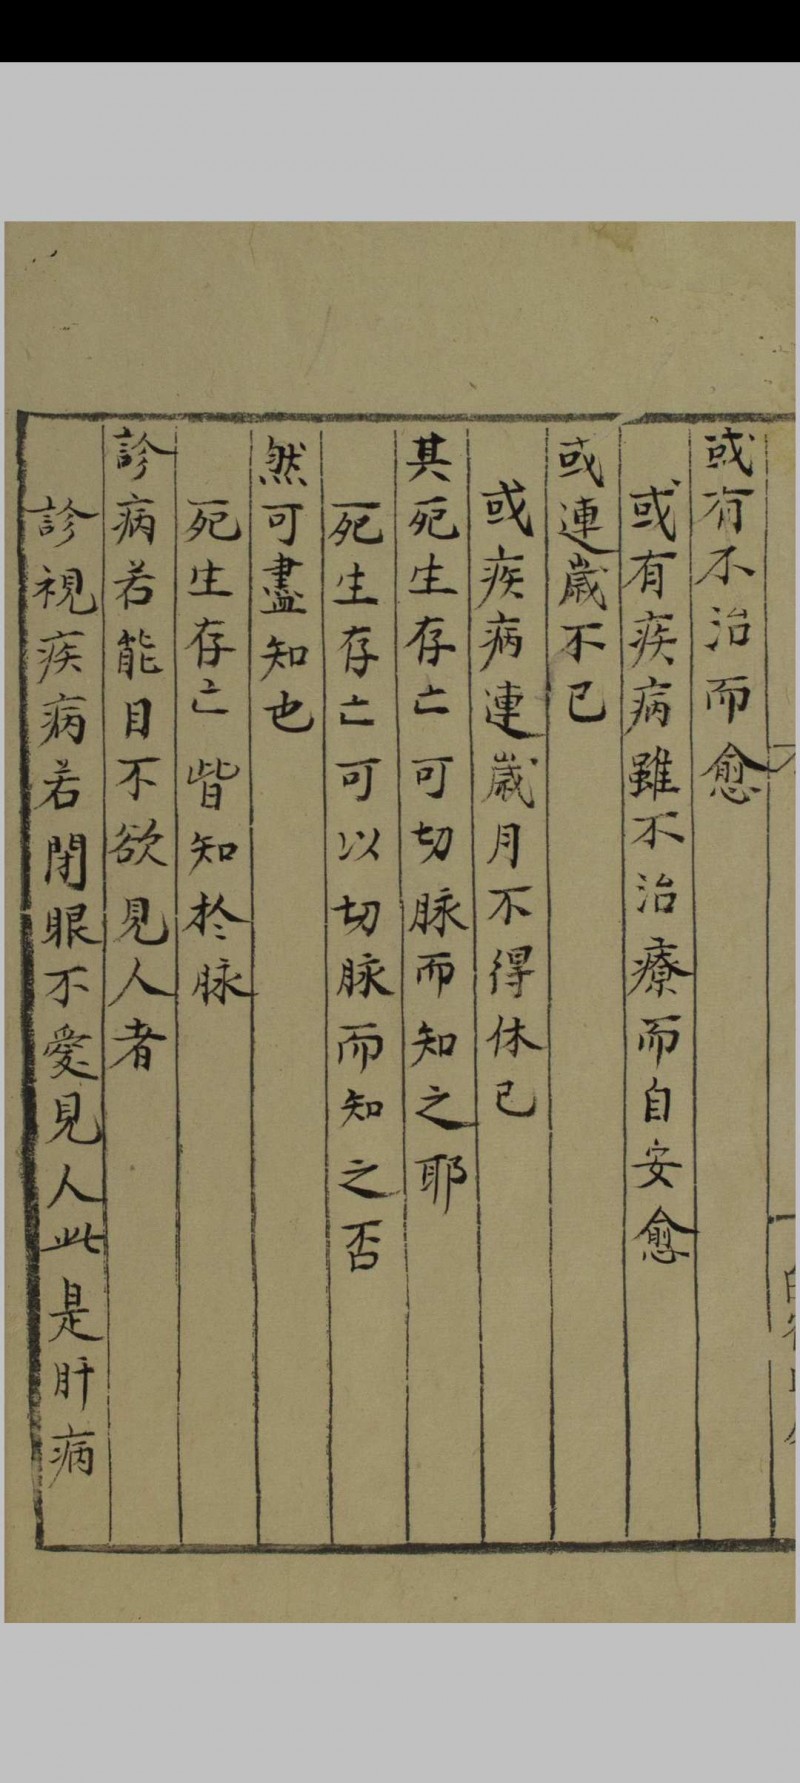 或有不治而愈
或有疾病雖不治療而自安愈
或連歲不已
或疾病連歲月不得休已
其死生存亡可切脉而知之耶
死生存亡可以切脉而知之否
然可盡知也
死生存亡皆知於脉
診病若能目不欲見人者
診視疾病若閉眼不愛見人此是肝病